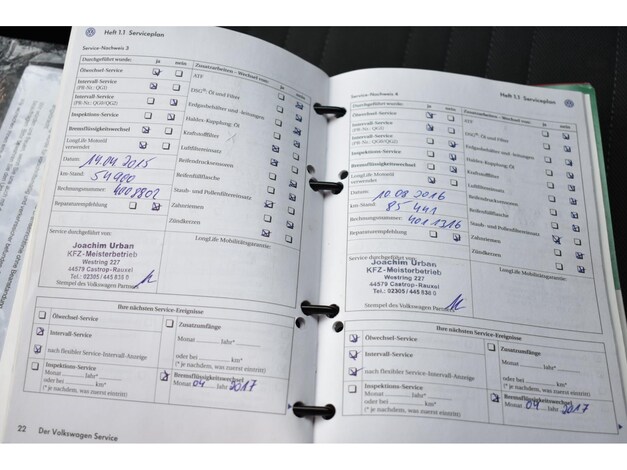 Heft 1.1 Serviceplan
Service-Nachweis 3
Durchgeführt wurde: ja nein
Ölwechsel-Service
Intervall-Service
(PR-Nr.: QG1)
Intervall-Service
(PR-Nr.: QG0/QG2)
Inspektions-Service
Bremsflüssigkeitswechsel
LongLife Motoröl
verwendet
Datum: 14.04.2015
km-Stand: 54900
Rechnungsnummer: 4008802
Reparaturempfehlung
Zusatzarbeiten – Wechsel von: ja nein
ATF
DSG® Öl und Filter
Haldex-Kupplung: Öl
Kraftstofffilter
Luftfiltereinsatz
Reifendruckventile
Reifenfüllflasche
Staub- und Pollenfiltereinsatz
Zahnriemen
Zündkerzen
LongLife Mobilitätsgarantie:
Service durchgeführt von:
Joachim Urban
KFZ-Meisterbetrieb
Westring 227
44579 Castrop-Rauxel
Tel.: 02305 / 445 830 0
Stempel des Volkswagen Partners
Ihre nächsten Service-Ereignisse
Ölwechsel-Service
Intervall-Service
nach flexibler Service-Intervall-Anzeige
Inspektions-Service
Monat Jahr*
oder bei km*
(* je nachdem, was zuerst eintritt)
Zusatzumfänge
Monat Jahr*
oder bei km*
(* je nachdem, was zuerst eintritt)
Bremsflüssigkeitswechsel
Monat 04 Jahr 2017
22 Der Volkswagen Service
Heft 1.1 Serviceplan
Service-Nachweis 4
Durchgeführt wurde: ja nein
Ölwechsel-Service
Intervall-Service
(PR-Nr.: QG1)
Intervall-Service
(PR-Nr.: QG0/QG2)
Inspektions-Service
Bremsflüssigkeitswechsel
LongLife Motoröl
verwendet
Datum: 10.08.2016
km-Stand: 85 441
Rechnungsnummer: 4011316
Reparaturempfehlung
Zusatzarbeiten – Wechsel von: ja nein
ATF
DSG® Öl und Filter
Haldex-Kupplung: Öl
Kraftstofffilter
Luftfiltereinsatz
Reifendruckventile
Reifenfüllflasche
Staub- und Pollenfiltereinsatz
Zahnriemen
Zündkerzen
LongLife Mobilitätsgarantie:
Service durchgeführt von:
Joachim Urban
KFZ-Meisterbetrieb
Westring 227
44579 Castrop-Rauxel
Tel.: 02305 / 445 830 0
Stempel des Volkswagen Partners
Ihre nächsten Service-Ereignisse
Ölwechsel-Service
Intervall-Service
nach flexibler Service-Intervall-Anzeige
Inspektions-Service
Monat Jahr*
oder bei km*
(* je nachdem, was zuerst eintritt)
Zusatzumfänge
Monat Jahr*
oder bei km*
(* je nachdem, was zuerst eintritt)
Bremsflüssigkeitswechsel
Monat 04 Jahr 2017